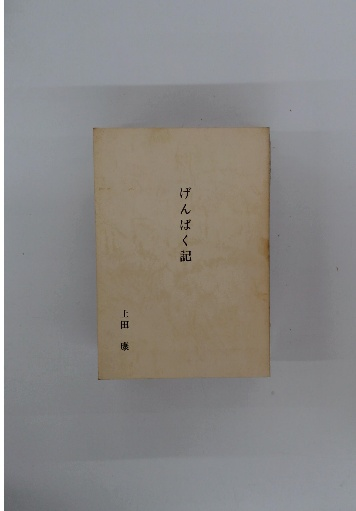 げんばく記
上田 廉